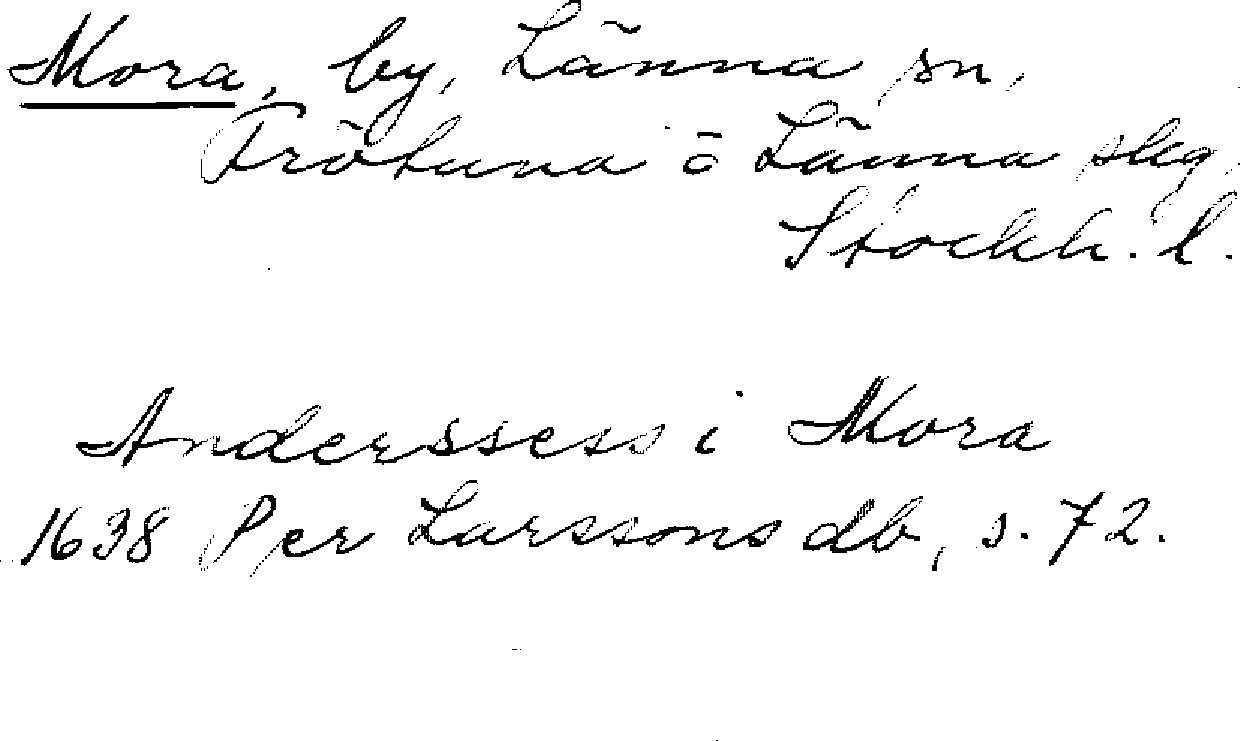 Mora, by, Länna sn,
Frötuna o Länna skg,
Stockh. l.
Anderssess i Mora
1638 Per Larssons db, s. 72.